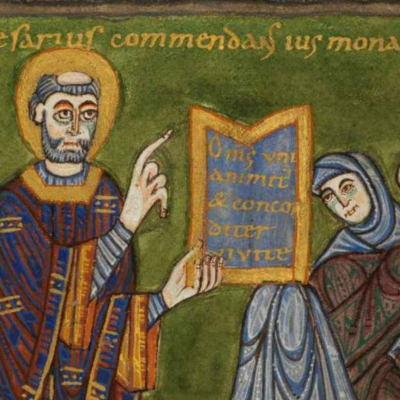 esarius commendans ius mona
Oms vni
animit
& concor
diter
vivite